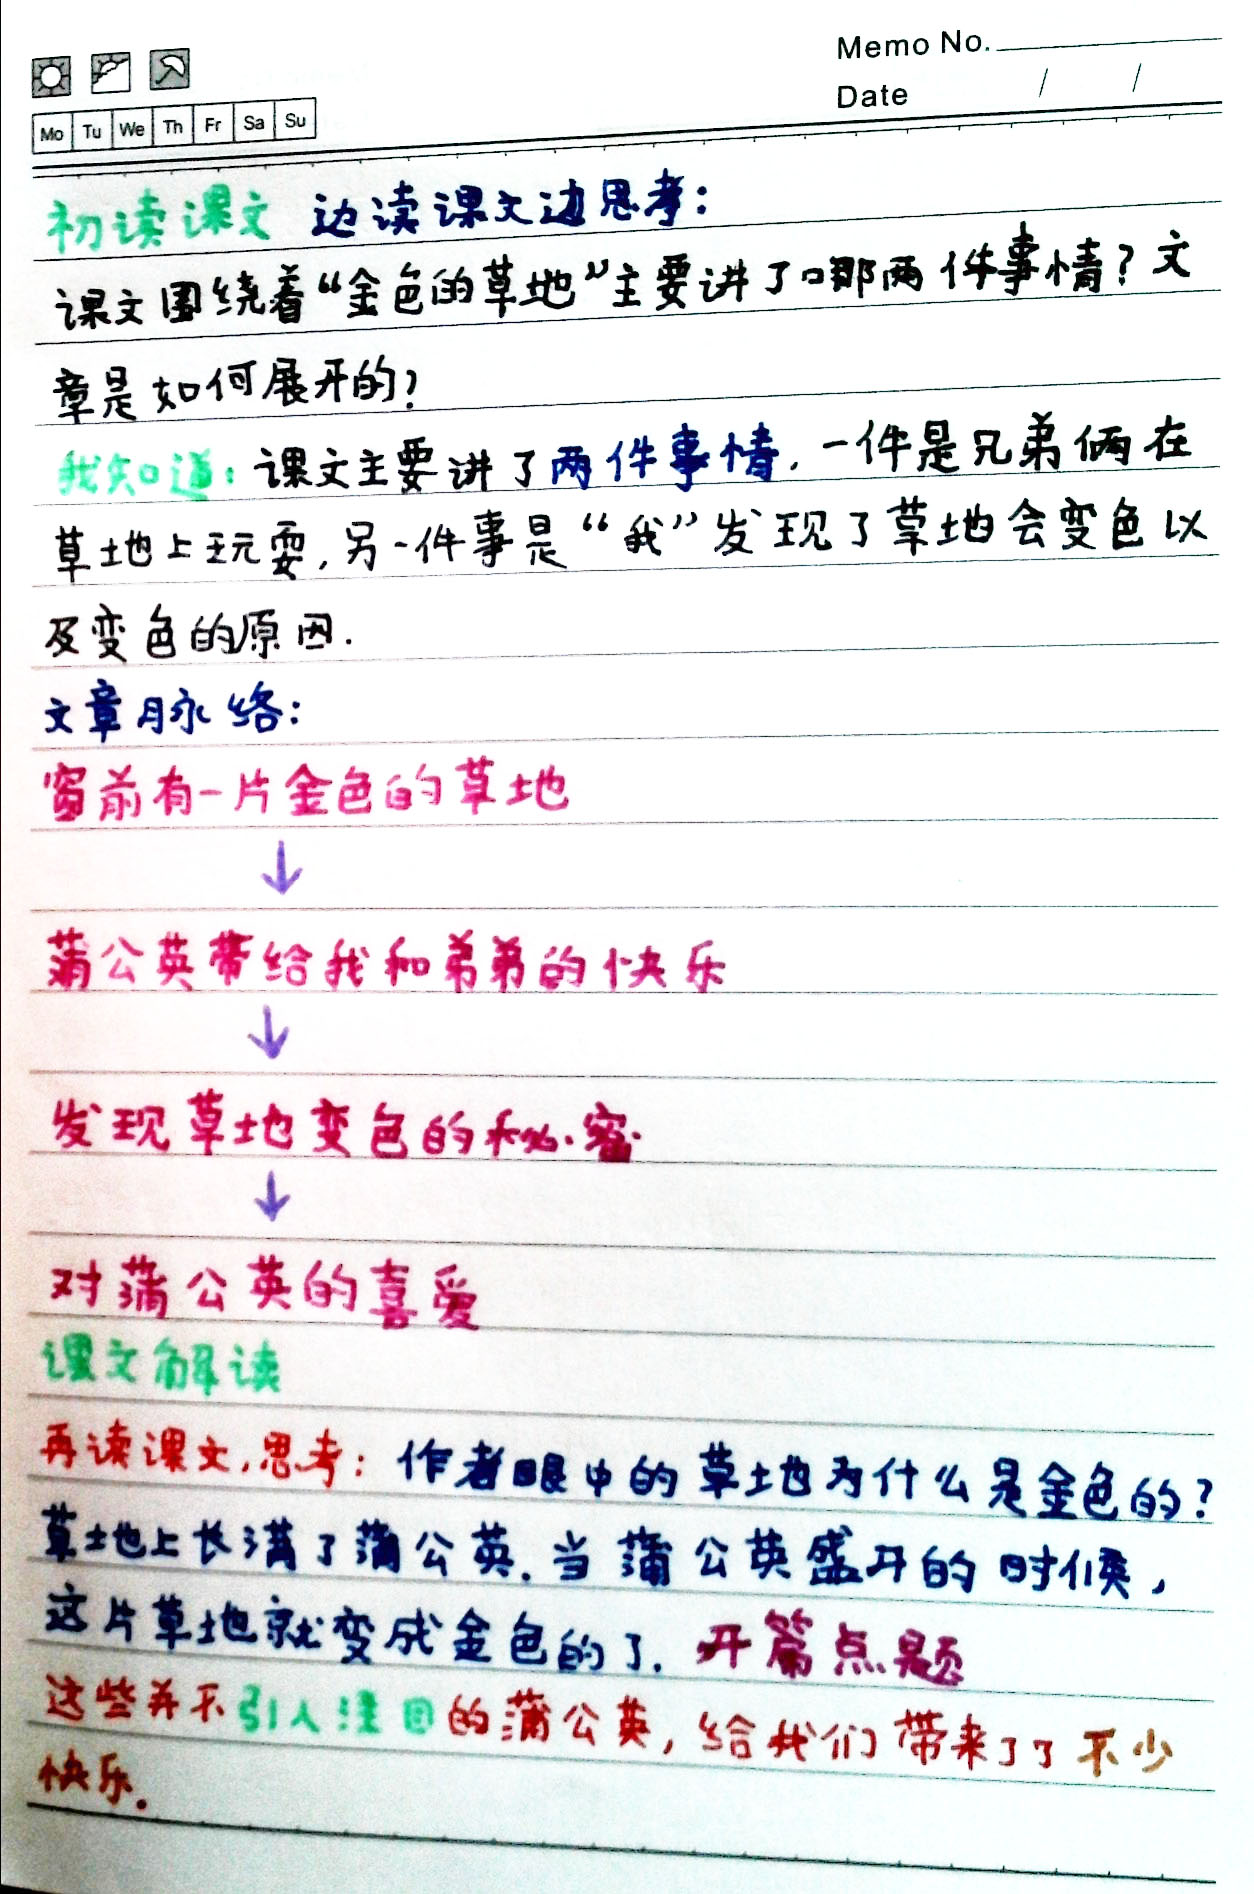 Memo No.
Date / /
Mo Tu We Th Fr Sa Su
初读课文 边读课文边思考:
课文围绕着“金色的草地”主要讲了哪两件事情?文
章是如何展开的?
我知道:课文主要讲了两件事情.一件是兄弟俩在
草地上玩耍,另一件事是“我”发现了草地会变色以
及变色的原因.
文章脉络:
窗前有一片金色的草地
↓
蒲公英带给我和弟弟的快乐
↓
发现草地变色的秘密
↓
对蒲公英的喜爱
课文解读
再读课文,思考:作者眼中的草地为什么是金色的?
草地上长满了蒲公英.当蒲公英盛开的时候,
这片草地就变成金色的了.开篇点题
这些并不引人注目的蒲公英,给我们带来了了不少
快乐.